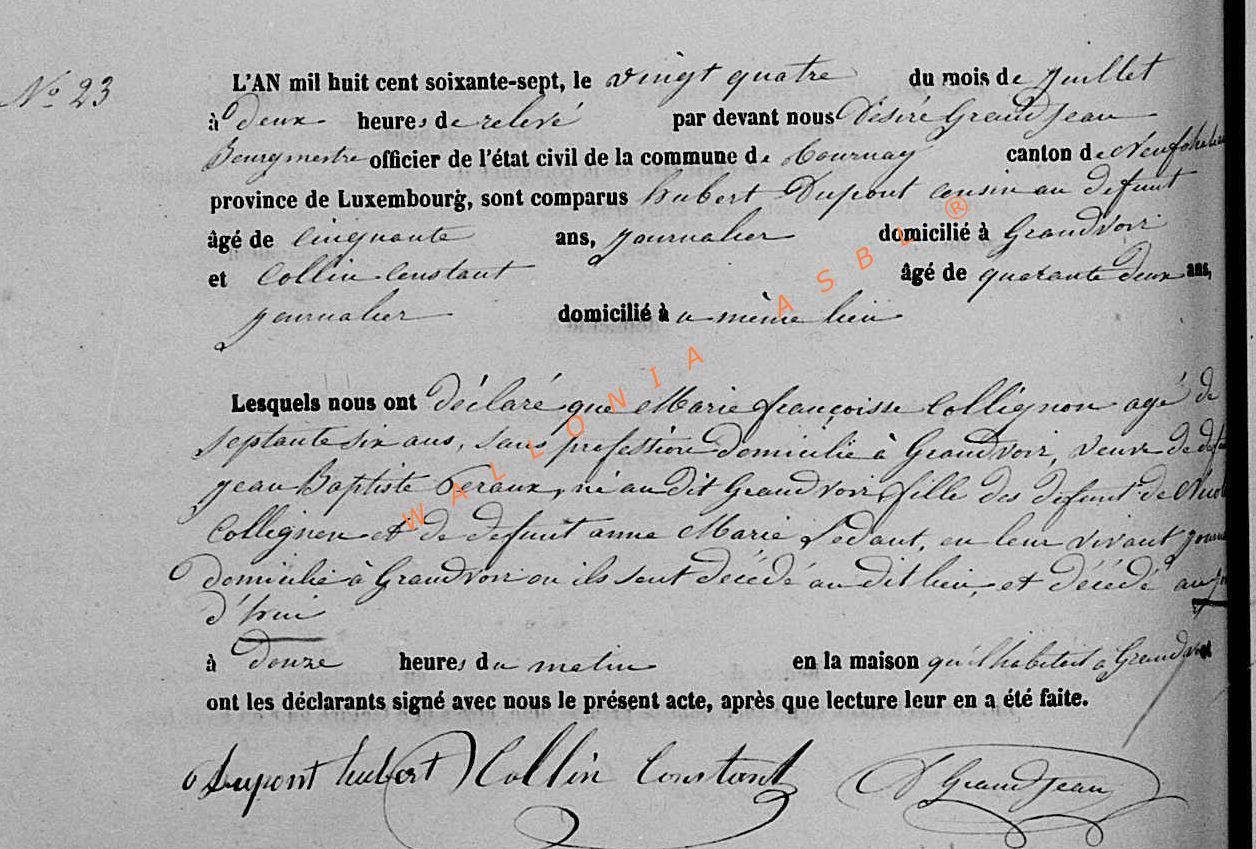 N° 23
L'AN mil huit cent soixante-sept, le vingt quatre du mois de juillet
à deux heures de relevé par devant nous Désiré GrandJean
Bourgmestre officier de l'état civil de la commune de Tournay canton de Neufchateau
province de Luxembourg, sont comparus hubert Dupont cousin au defunt
âgé de Cinquante ans, journalier domicilié à Grandvoir
et Collin Constant âgé de quarante deux ans,
journalier domicilié à u même lieu
Lesquels nous ont déclaré que Marie françoisse Collignon agé de
septante six ans, sans profession domicilié à Grandvoir, veuve de
jean Baptiste, né au dit Grandvoir fille des defunt de
Collignon et de defunt anne Marie Ledant, en leur vivant
domicilié à Grandvoir ou ils sont décédé au dit lieu, et décédé au
d'hui
à Douze heures du matin en la maison qu'il habitait a Grandvoir
ont les déclarants signé avec nous le présent acte, après que lecture leur en a été faite.
Dupont hubert Collin Constant D GrandJean
WALLONIA ASBL ®